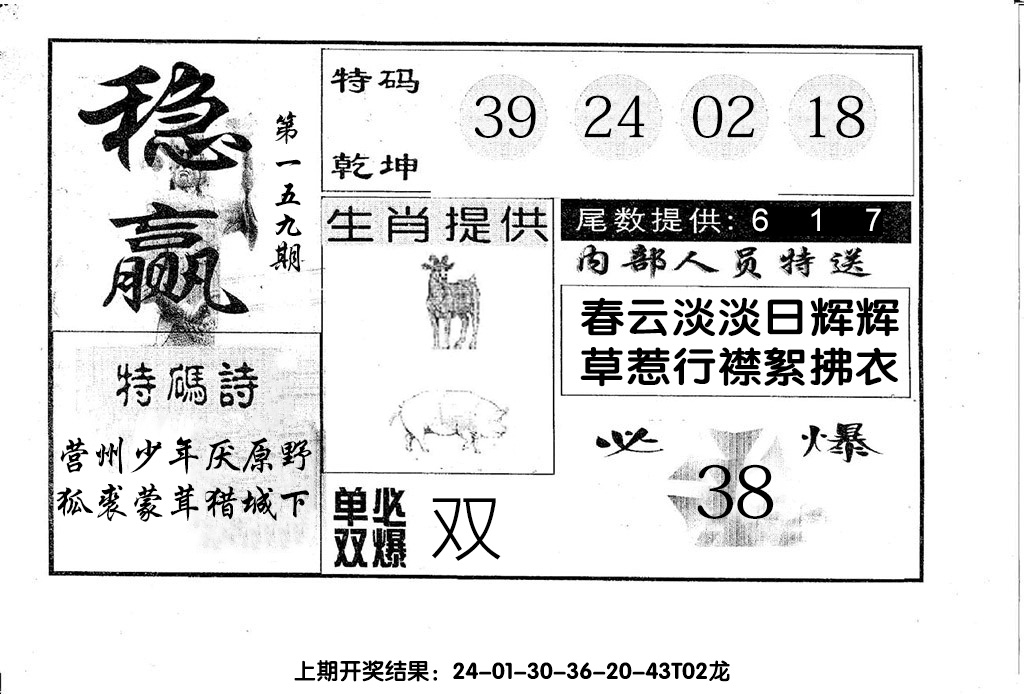 稳赢
第一五九期
特码
乾坤
39 24 02 18
生肖提供
尾数提供: 6 1 7
内部人员特送
春云淡淡日辉辉
草惹行襟絮拂衣
特碼詩
营州少年厌原野
狐裘蒙茸猎城下
必爆
38
单双
必爆
双
上期开奖结果：24-01-30-36-20-43T02龙